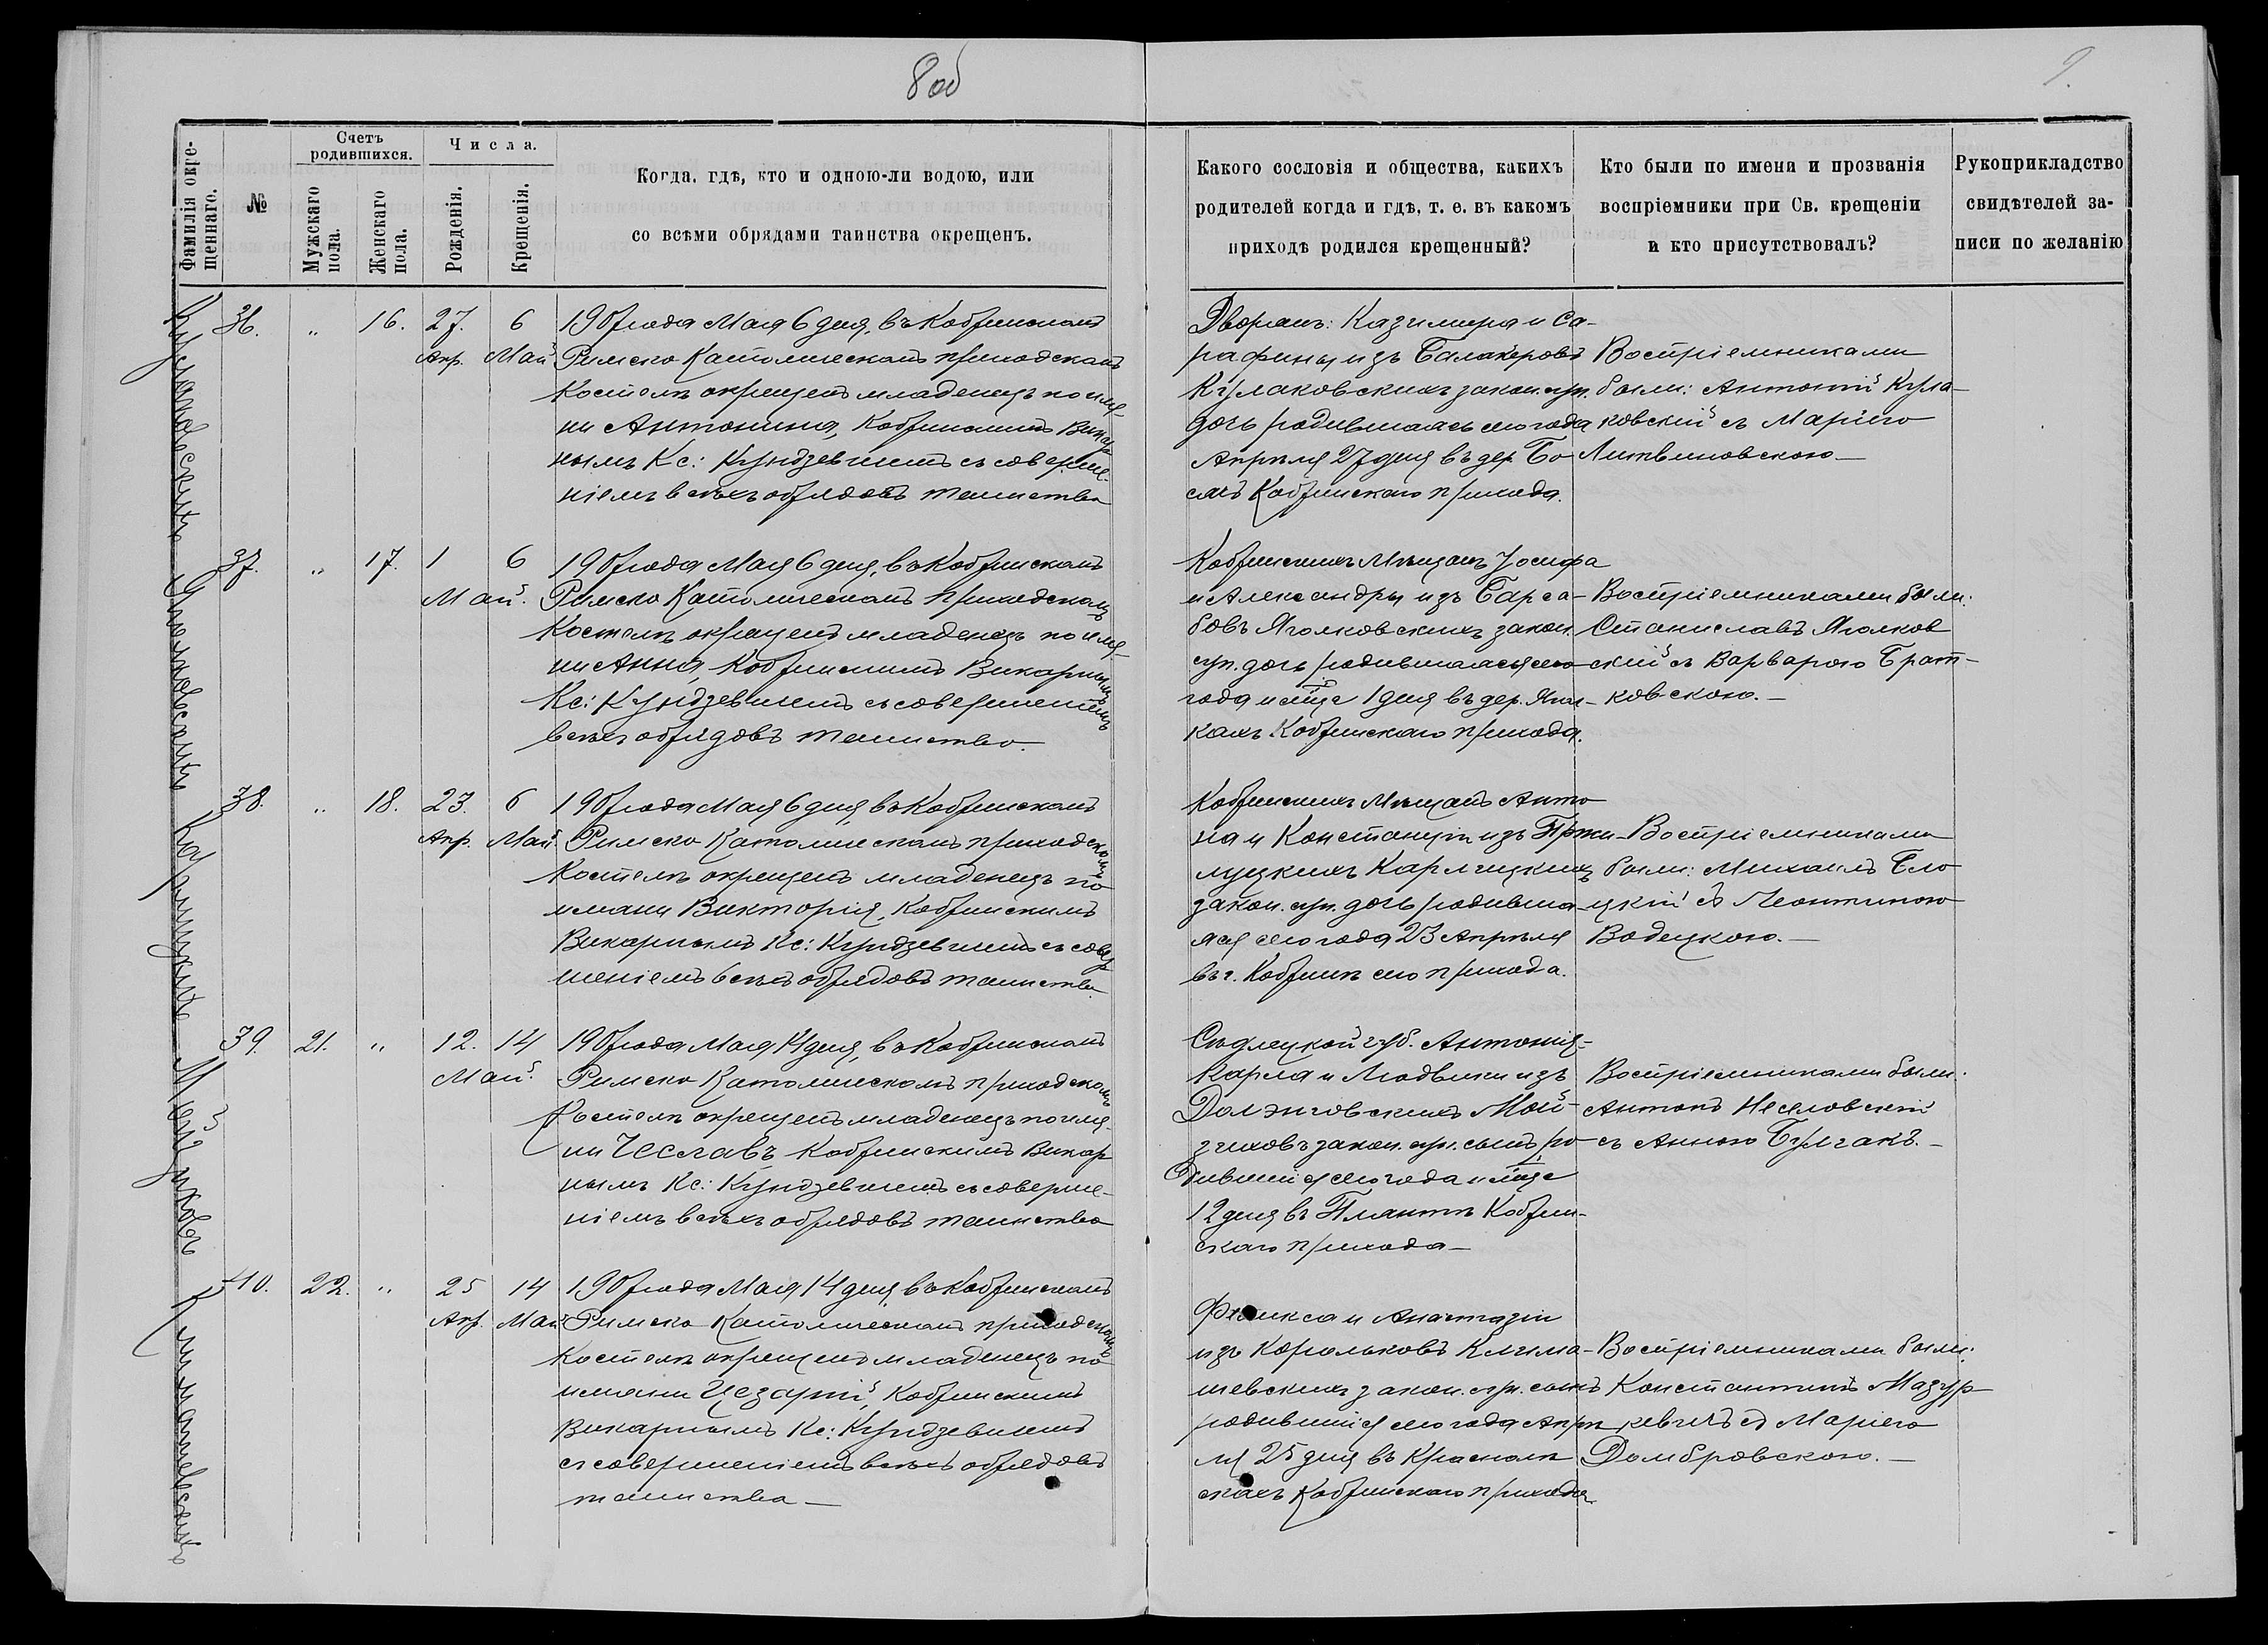 8 об
9.
Фамилія окре-
щеннаго.
№
Счетъ
родившихся.
Мужскаго
пола.
Женскаго
пола.
Числа.
Рожденія.
Крещенія.
Когда, гдѣ, кто и одною-ли водою, или
со всѣми обрядами таинства окрещенъ.
Какого сословія и общества, какихъ
родителей когда и гдѣ, т. е. въ какомъ
приходѣ родился крещенный?
Кто были по имени и прозванія
воспріемники при Св. крещеніи
и кто присутствовалъ?
Рукоприкладство
свидѣтелей за-
писи по желанію
Кулаковскихъ
36. " 16. 27. 6
Апр. Май
1907 года Мая 6 дня, въ Кобринскомъ
Римско Католическомъ приходскомъ
Костелѣ окрещенъ младенецъ по име-
ни Антонина, Кобринскимъ Викар
нымъ Кс: Кундзевичемъ съ соверше-
ніемъ всѣхъ обрядовъ таинства
Дворянъ: Казимира и Се-
рафины изъ
Кулаковскихъ закон. суп.
дочь родившаяся сего года
Апрѣля 27 дня въ дер. Бо-
смъ Кобринскаго прихода.
Воспріемниками
были: Антоній Кула-
ковскій съ Маріею
Литвиновскою—
Яголковскихъ
37. " 17. 1 6
Май.
1907 года Мая 6 дня, въ Кобринскомъ
Римско Католическомъ приходскомъ
Костелѣ окрещенъ младенецъ по име-
ни Анна, Кобринскимъ Викарнымъ
Кс: Кундзевичемъ съ совершеніемъ
всѣхъ обрядовъ таинства.
Кобринскихъ Мѣщанъ Іосифа
и Александры изъ Барса-
бовъ Яголковскихъ закон.
суп. дочь родившаяся сего
года и м-ца 1 дня въ дер.
кахъ Кобринскаго прихода.
Воспріемниками были:
Станиславъ Яголков
скій съ Варварою Брат-
ковскою.—
38. " 18. 23. 6
Апр. Май.
1907 года Мая 6 дня, въ Кобринскомъ
Римско Католическомъ приходскомъ
Костелѣ окрещенъ младенецъ по
имени Викторія, Кобринскимъ
Викарнымъ Кс: Кундзевичемъ съ совер
шеніемъ всѣхъ обрядовъ таинства.
Кобринскихъ Мѣщанъ Анто
на и Констанціи изъ
закон. суп. дочь родивша-
яся сего года 23 Апрѣля
въ г. Кобринѣ сего прихода.
Воспріемниками
были: Михаилъ Бло
цкій съ Леонтиною
Водецкою.—
Мойзиковъ
39. 21. " 12. 14
Май.
1907 года Мая 14 дня, въ Кобринскомъ
Римско Католическомъ приходскомъ
Костелѣ окрещенъ младенецъ по име-
ни Чеславъ, Кобринскимъ Викар
нымъ Кс: Кундзевичемъ съ соверше-
ніемъ всѣхъ обрядовъ таинства
Сѣдлецкой губ. Антонія-
Карла и Людвики изъ
Долэнговскихъ Мой-
зиковъ закон. суп. сынъ ро-
дившійся сего года и м-ца
12 дня въ Плянтѣ Кобрин-
скаго прихода—
Воспріемниками были:
Антонъ Неселовскій
съ Анною Булгакъ.—
Климашевскихъ
40. 22. " 25 14
Апр. Май
1907 года Мая 14 дня, въ Кобринскомъ
Римско Католическомъ приходскомъ
Костелѣ окрещенъ младенецъ по
имени Цезарій, Кобринскимъ
Викарнымъ Кс: Кундзевичемъ
съ совершеніемъ всѣхъ обрядовъ
таинства—
Феликса и Анастазіи
изъ Корольковъ Клима-
шевскихъ закон. суп. сынъ
родившійся сего года Апрѣ
ля 25 дня въ
скахъ Кобринскаго прихода
Воспріемниками были:
Константинъ Мазур
кевичъ съ Маріею
Домбровскою.—